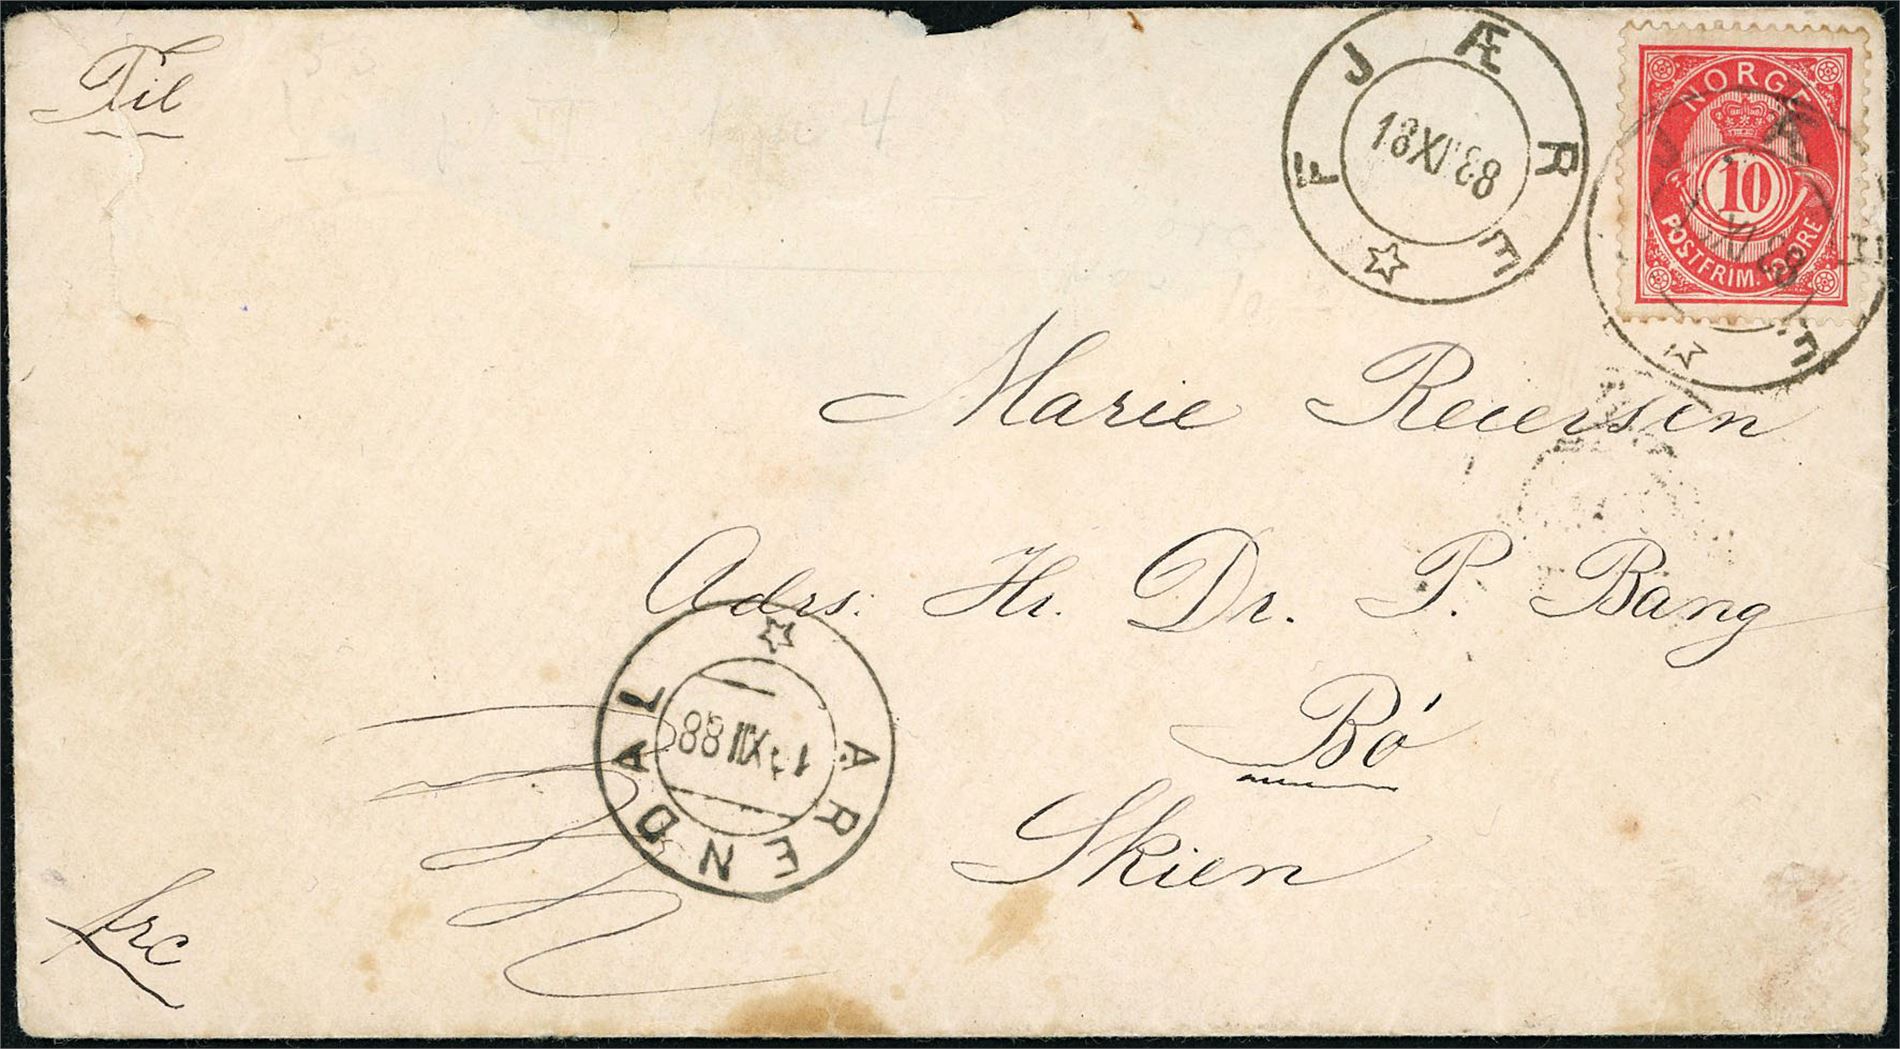 Til
FJÆRE
NORGE
10
POSTFRIM. ØRE
Marie Reiersen
Adrs: Hr. Dr. P. Bang
Bó
Skien
ARENDAL
frc